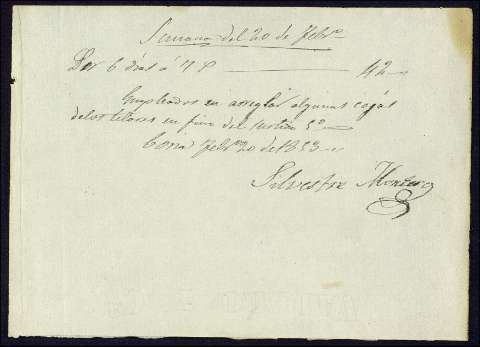 Semana del 20 de Febro
Por 6 dias á 7 P — 42
Empleados en arreglar algunas cajas
de los telares en fino del
Febro 20 de 1853
Silvestre